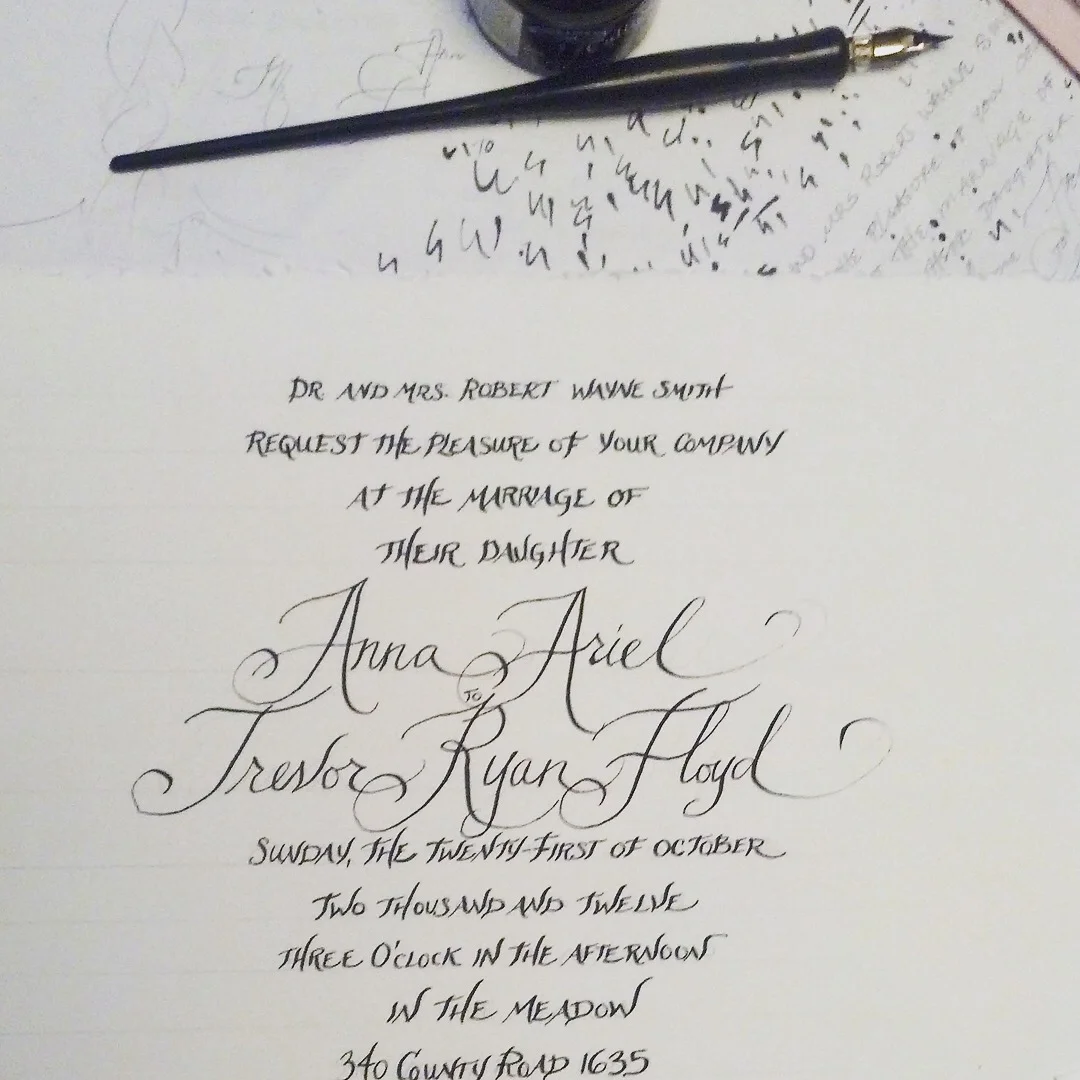 DR. AND MRS. ROBERT WAYNE SMITH
REQUEST THE PLEASURE OF YOUR COMPANY
AT THE MARRIAGE OF
THEIR DAUGHTER
Anna Ariel
TO
Trevor Ryan Floyd
SUNDAY, THE TWENTY-FIRST OF OCTOBER
TWO THOUSAND AND TWELVE
THREE O'CLOCK IN THE AFTERNOON
IN THE MEADOW
340 COUNTY ROAD 1635
MRS ROBERT WAYNE
PLEASURE OF YOUR
THE MARRIAGE OF
DAUGHTER